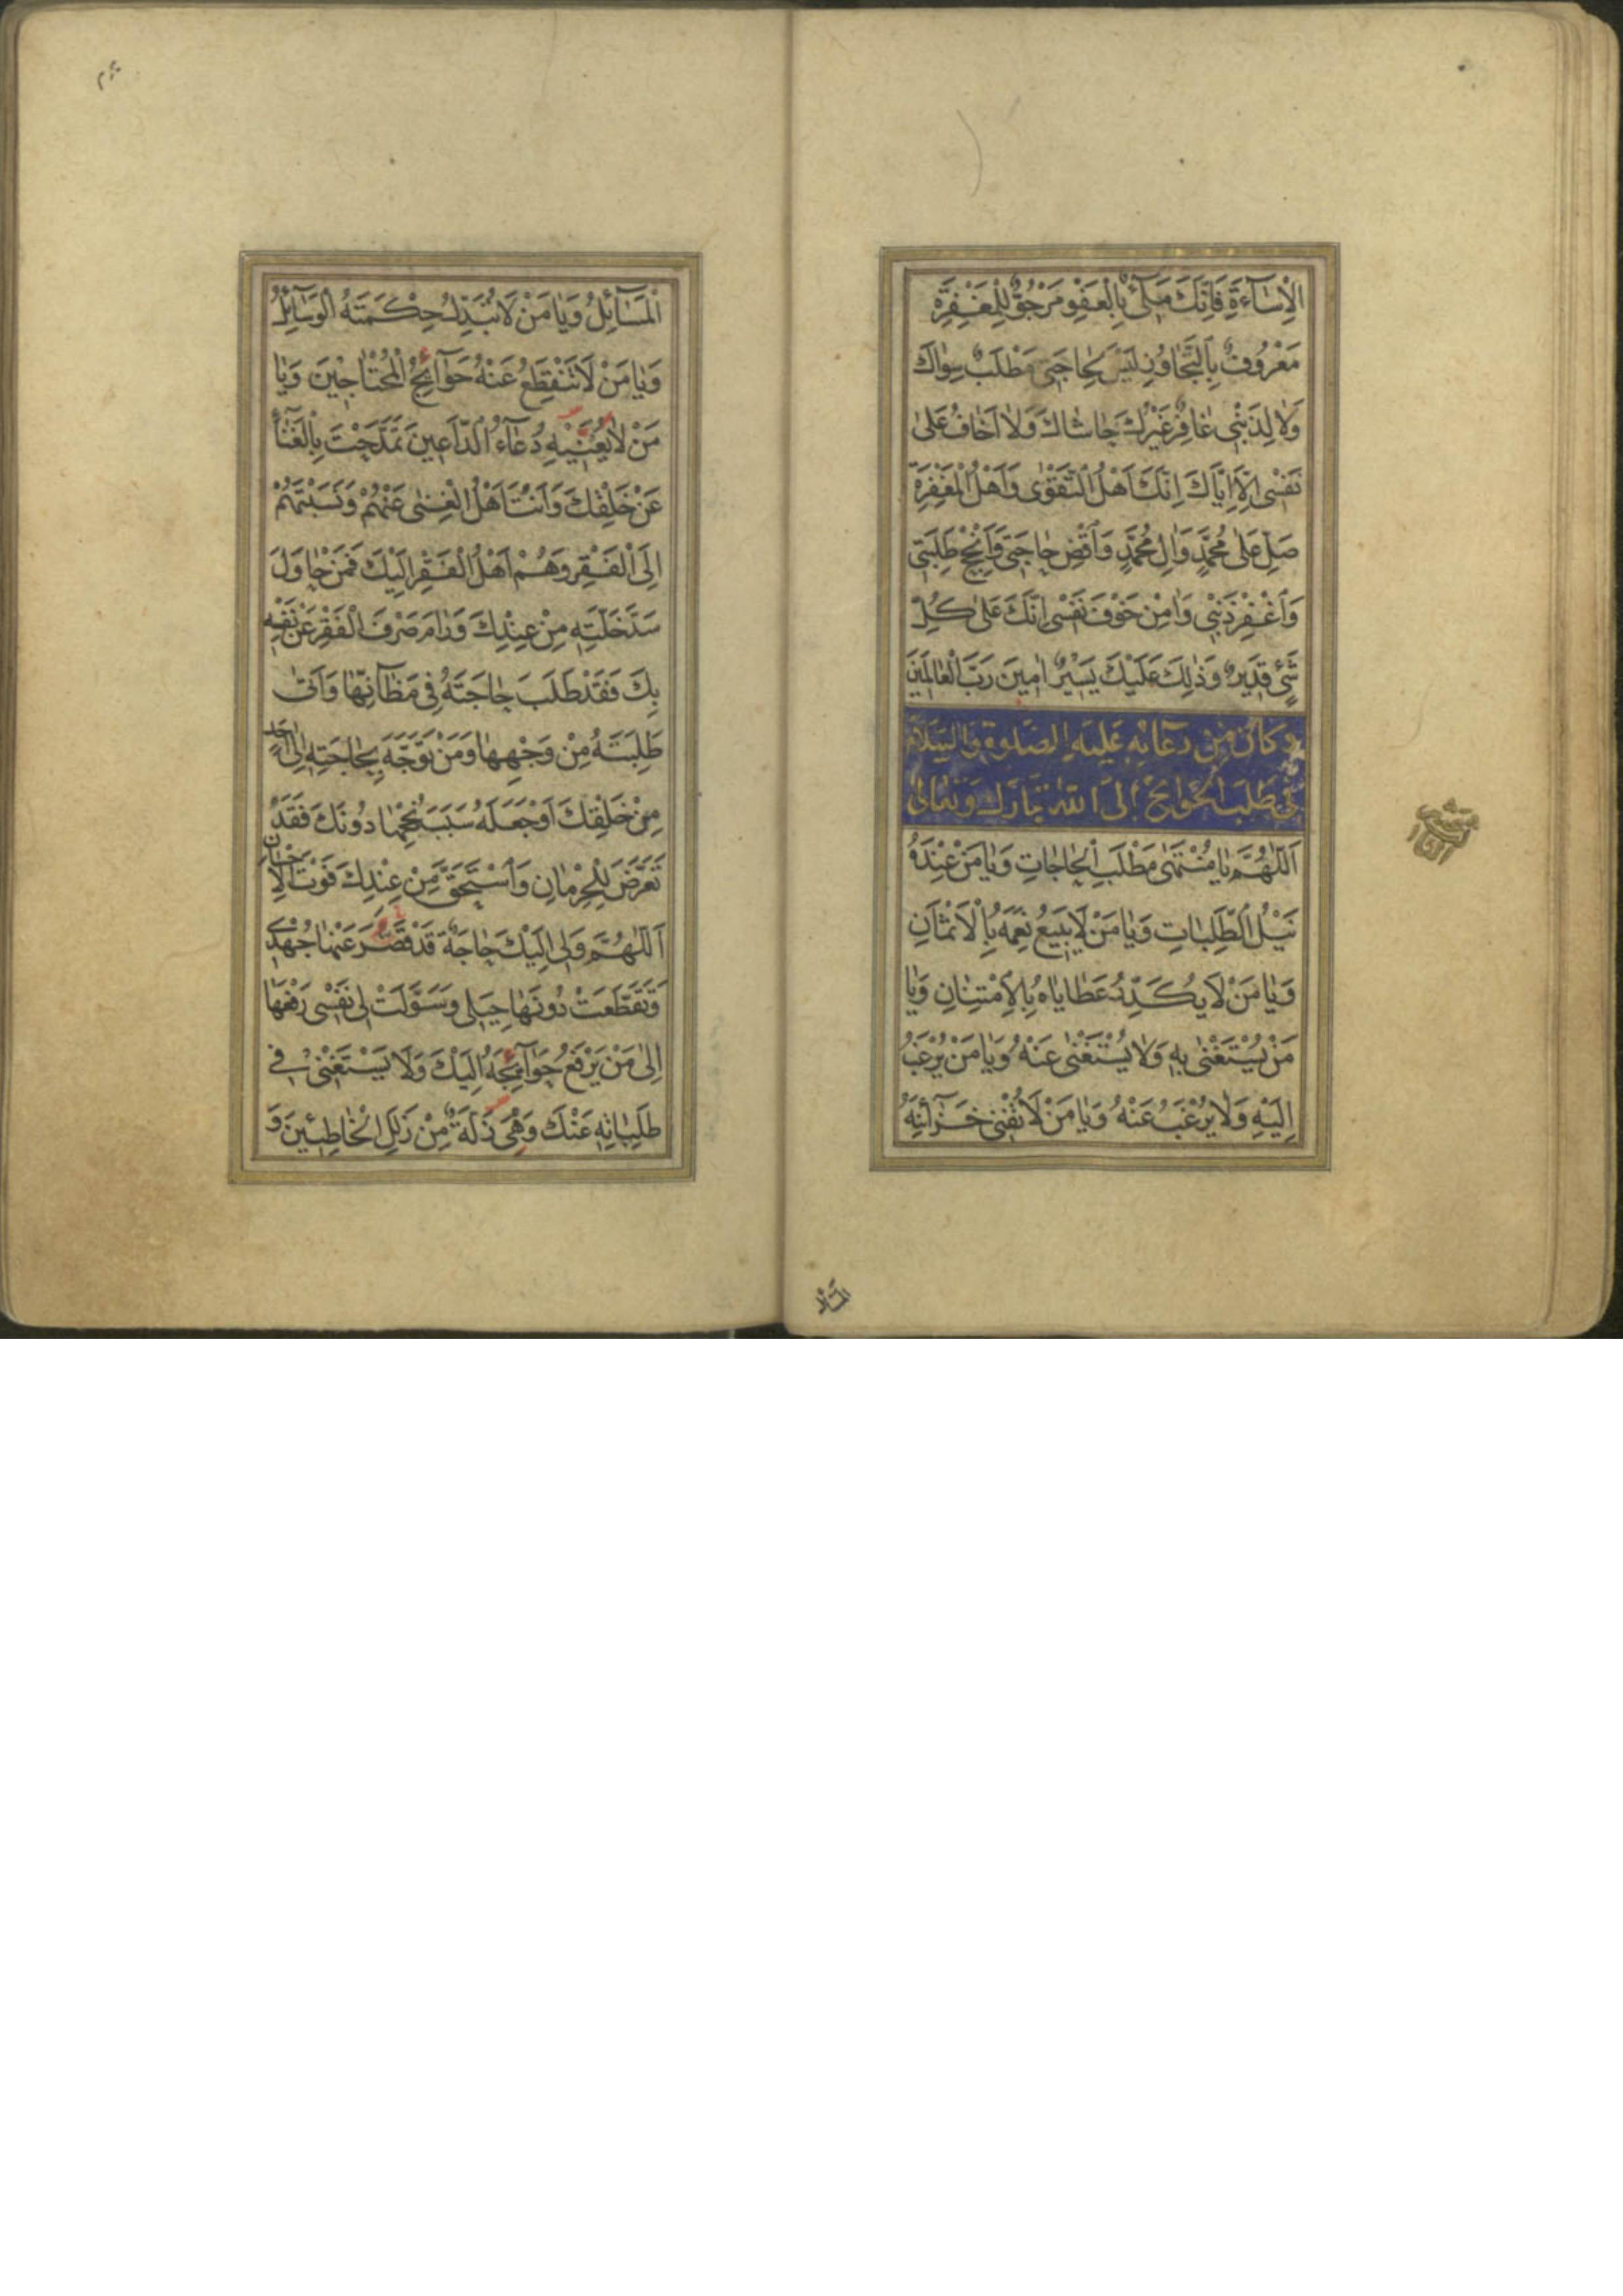 الْاِسٰآءَةِ فَاِنَّكَ مَلِیٌّ بِالْعَفْوِ مَرْجُوٌّ لِلْمَغْفِرَةِ
مَعْرُوفٌ بِالتَّجٰاوُزِ لَيْسَ لِحٰاجَتِى مَطْلَبٌ سِوٰاكَ
وَلٰا لِذَنْبِى غٰافِرٌ غَيْرُكَ حٰاشٰاكَ وَلٰا اَخٰافُ عَلىٰ
نَفْسِى اِلّٰا اِيّٰاكَ اِنَّكَ اَهْلُ التَّقْوٰى وَاَهْلُ الْمَغْفِرَةِ
صَلِّ عَلىٰ مُحَمَّدٍ وَاٰلِ مُحَمَّدٍ وَاقْضِ حٰاجَتِى وَاَنْجِحْ طَلِبَتِى
وَاغْفِرْ ذَنْبِى وَاٰمِنْ خَوْفَ نَفْسِى اِنَّكَ عَلىٰ كُلِّ
شَیْءٍ قَدِيرٌ وَذٰلِكَ عَلَيْكَ يَسِيْرٌ اٰمِينَ رَبَّ الْعٰالَمِينَ
وَكَانَ مِنْ دُعَائِهِ عَلَيْهِ الصَّلوةُ وَالسَّلَامُ
فِى طَلَبِ الْحَوَائِجِ اِلَى اللهِ تَبَارَكَ وَتَعَالىٰ
اَللّٰهُمَّ يٰا مُنْتَهىٰ مَطْلَبِ الْحٰاجٰاتِ وَيٰا مَنْ عِنْدَهُ
نَيْلُ الطَّلِبٰاتِ وَيٰا مَنْ لَا يَبِيعُ نِعَمَهُ بِالْاَثْمٰانِ
وَيٰا مَنْ لَا يُكَدِّرُ عَطٰايٰاهُ بِالْاِمْتِنٰانِ وَيٰا
مَنْ يُسْتَغْنٰى بِهِ وَلٰا يُسْتَغْنٰى عَنْهُ وَيٰا مَنْ يُرْغَبُ
اِلَيْهِ وَلٰا يُرْغَبُ عَنْهُ وَيٰا مَنْ لَا تُفْنِى خَزٰآئِنَهُ
الْمَسٰآئِلُ وَيٰا مَنْ لَا تُبَدِّلُ حِكْمَتَهُ الْوَسٰآئِلُ
وَيٰا مَنْ لَا تَنْقَطِعُ عَنْهُ حَوَآئِجُ الْمُحْتٰاجِيْنَ وَيٰا
مَنْ لٰا يُعَنِّيْهِ دُعٰآءُ الدّٰاعِينَ تَمَدَّحْتَ بِالْغَنٰآءِ
عَنْ خَلْقِكَ وَاَنْتَ اَهْلُ الْغِنٰى عَنْهُمْ وَنَسَبْتَهُمْ
اِلَى الْفَقْرِ وَهُمْ اَهْلُ الْفَقْرِ اِلَيْكَ فَمَنْ حٰاوَلَ
سَدَّ خَلَّتِهِ مِنْ عِنْدِكَ وَرٰامَ صَرْفَ الْفَقْرِ عَنْ نَفْسِهِ
بِكَ فَقَدْ طَلَبَ حٰاجَتَهُ فِى مَظٰآنِّهٰا وَاَتىٰ
طَلِبَتَهُ مِنْ وَجْهِهٰا وَمَنْ تَوَجَّهَ بِحٰاجَتِهِ اِلىٰ اَحَدٍ
مِنْ خَلْقِكَ اَوْ جَعَلَهُ سَبَبَ نُجْحِهٰا دُونَكَ فَقَدْ
تَعَرَّضَ لِلْحِرْمٰانِ وَاسْتَحَقَّ مِنْ عِنْدِكَ فَوْتَ الْاِحْسٰانِ
اَللّٰهُمَّ وَلِى اِلَيْكَ حٰاجَةٌ قَدْ قَصَّرَ عَنْهٰا جُهْدِى
وَتَقَطَّعَتْ دُونَهٰا حِيَلِى وَسَوَّلَتْ لِى نَفْسِى رَفْعَهٰا
اِلىٰ مَنْ يَرْفَعُ حَوٰآئِجَهُ اِلَيْكَ وَلَا يَسْتَغْنِى فِى
طَلِبٰاتِهِ عَنْكَ وَهِىَ زَلَّةٌ مِنْ زَلَلِ الْخٰاطِئِينَ وَ